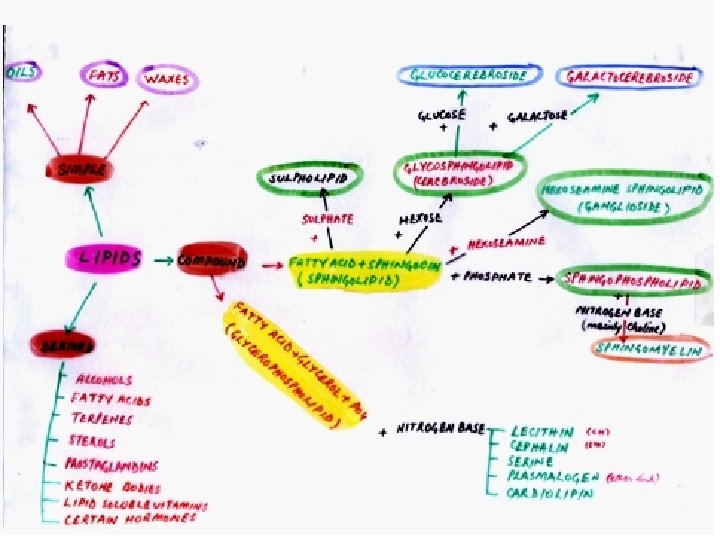 OILS
FATS
WAXES
GLUCOCEREBROSIDE
GALACTOCEREBROSIDE
GLUCOSE
+
+ GALACTOSE
SIMPLE
SULPHOLIPID
GLYCOSPHINGOLIPID
(CEREBROSIDE)
HEXOSEAMINE SPHINGOLIPID
(GANGLIOSIDE)
SULPHATE
+
HEXOSE
+
+ HEXOSEAMINE
LIPIDS
COMPOUND
FATTY ACID + SPHINGOCIN
(SPHINGOLIPID)
+ PHOSPHATE
SPHINGOPHOSPHOLIPID
+
NITROGEN BASE
(mainly Choline)
SPHINGOMYELIN
FATTY ACID + GLYCEROL + PO4
(GLYCEROPHOSPHOLIPID)
DERIVED
ALCOHOLS
FATTY ACIDS
TERPENES
STEROLS
PROSTAGLANDINS
KETONE BODIES
LIPID SOLUBLE VITAMINS
CERTAIN HORMONES
+ NITROGEN BASE
LECITHIN
CEPHALIN
SERINE
PLASMALOGEN
CARDIOLIPIN